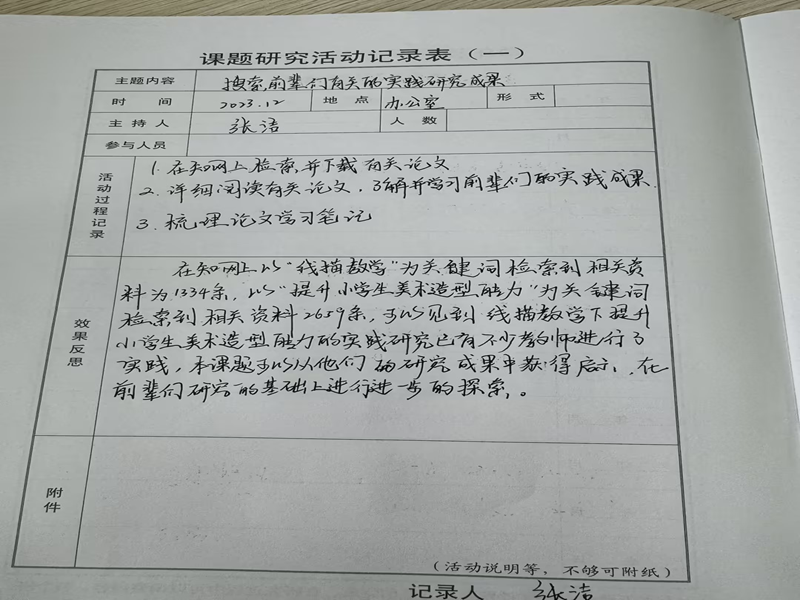 课题研究活动记录表（一）
主题内容 搜索前辈们有关的实践研究成果
时 间 2023.12 地 点 办公室 形 式
主 持 人 张洁 人 数
参与人员
活动过程记录
1. 在知网上检索并下载有关论文
2. 详细阅读有关论文，了解并学习前辈们的实践成果.
3. 梳理论文学习笔记
效果反思
在知网上以“线描教学”为关键词检索到相关资
料为1334条，以“提升小学生美术造型能力”为关键词
检索到相关资料2659条，可以见到线描教学下提升
小学生美术造型能力的实践研究已有不少教师进行了
实践，本课题可以从他们的研究成果中获得启示，在
前辈们研究的基础上进行进一步的探索。
附件
（活动说明等，不够可附纸）
记录人 张洁